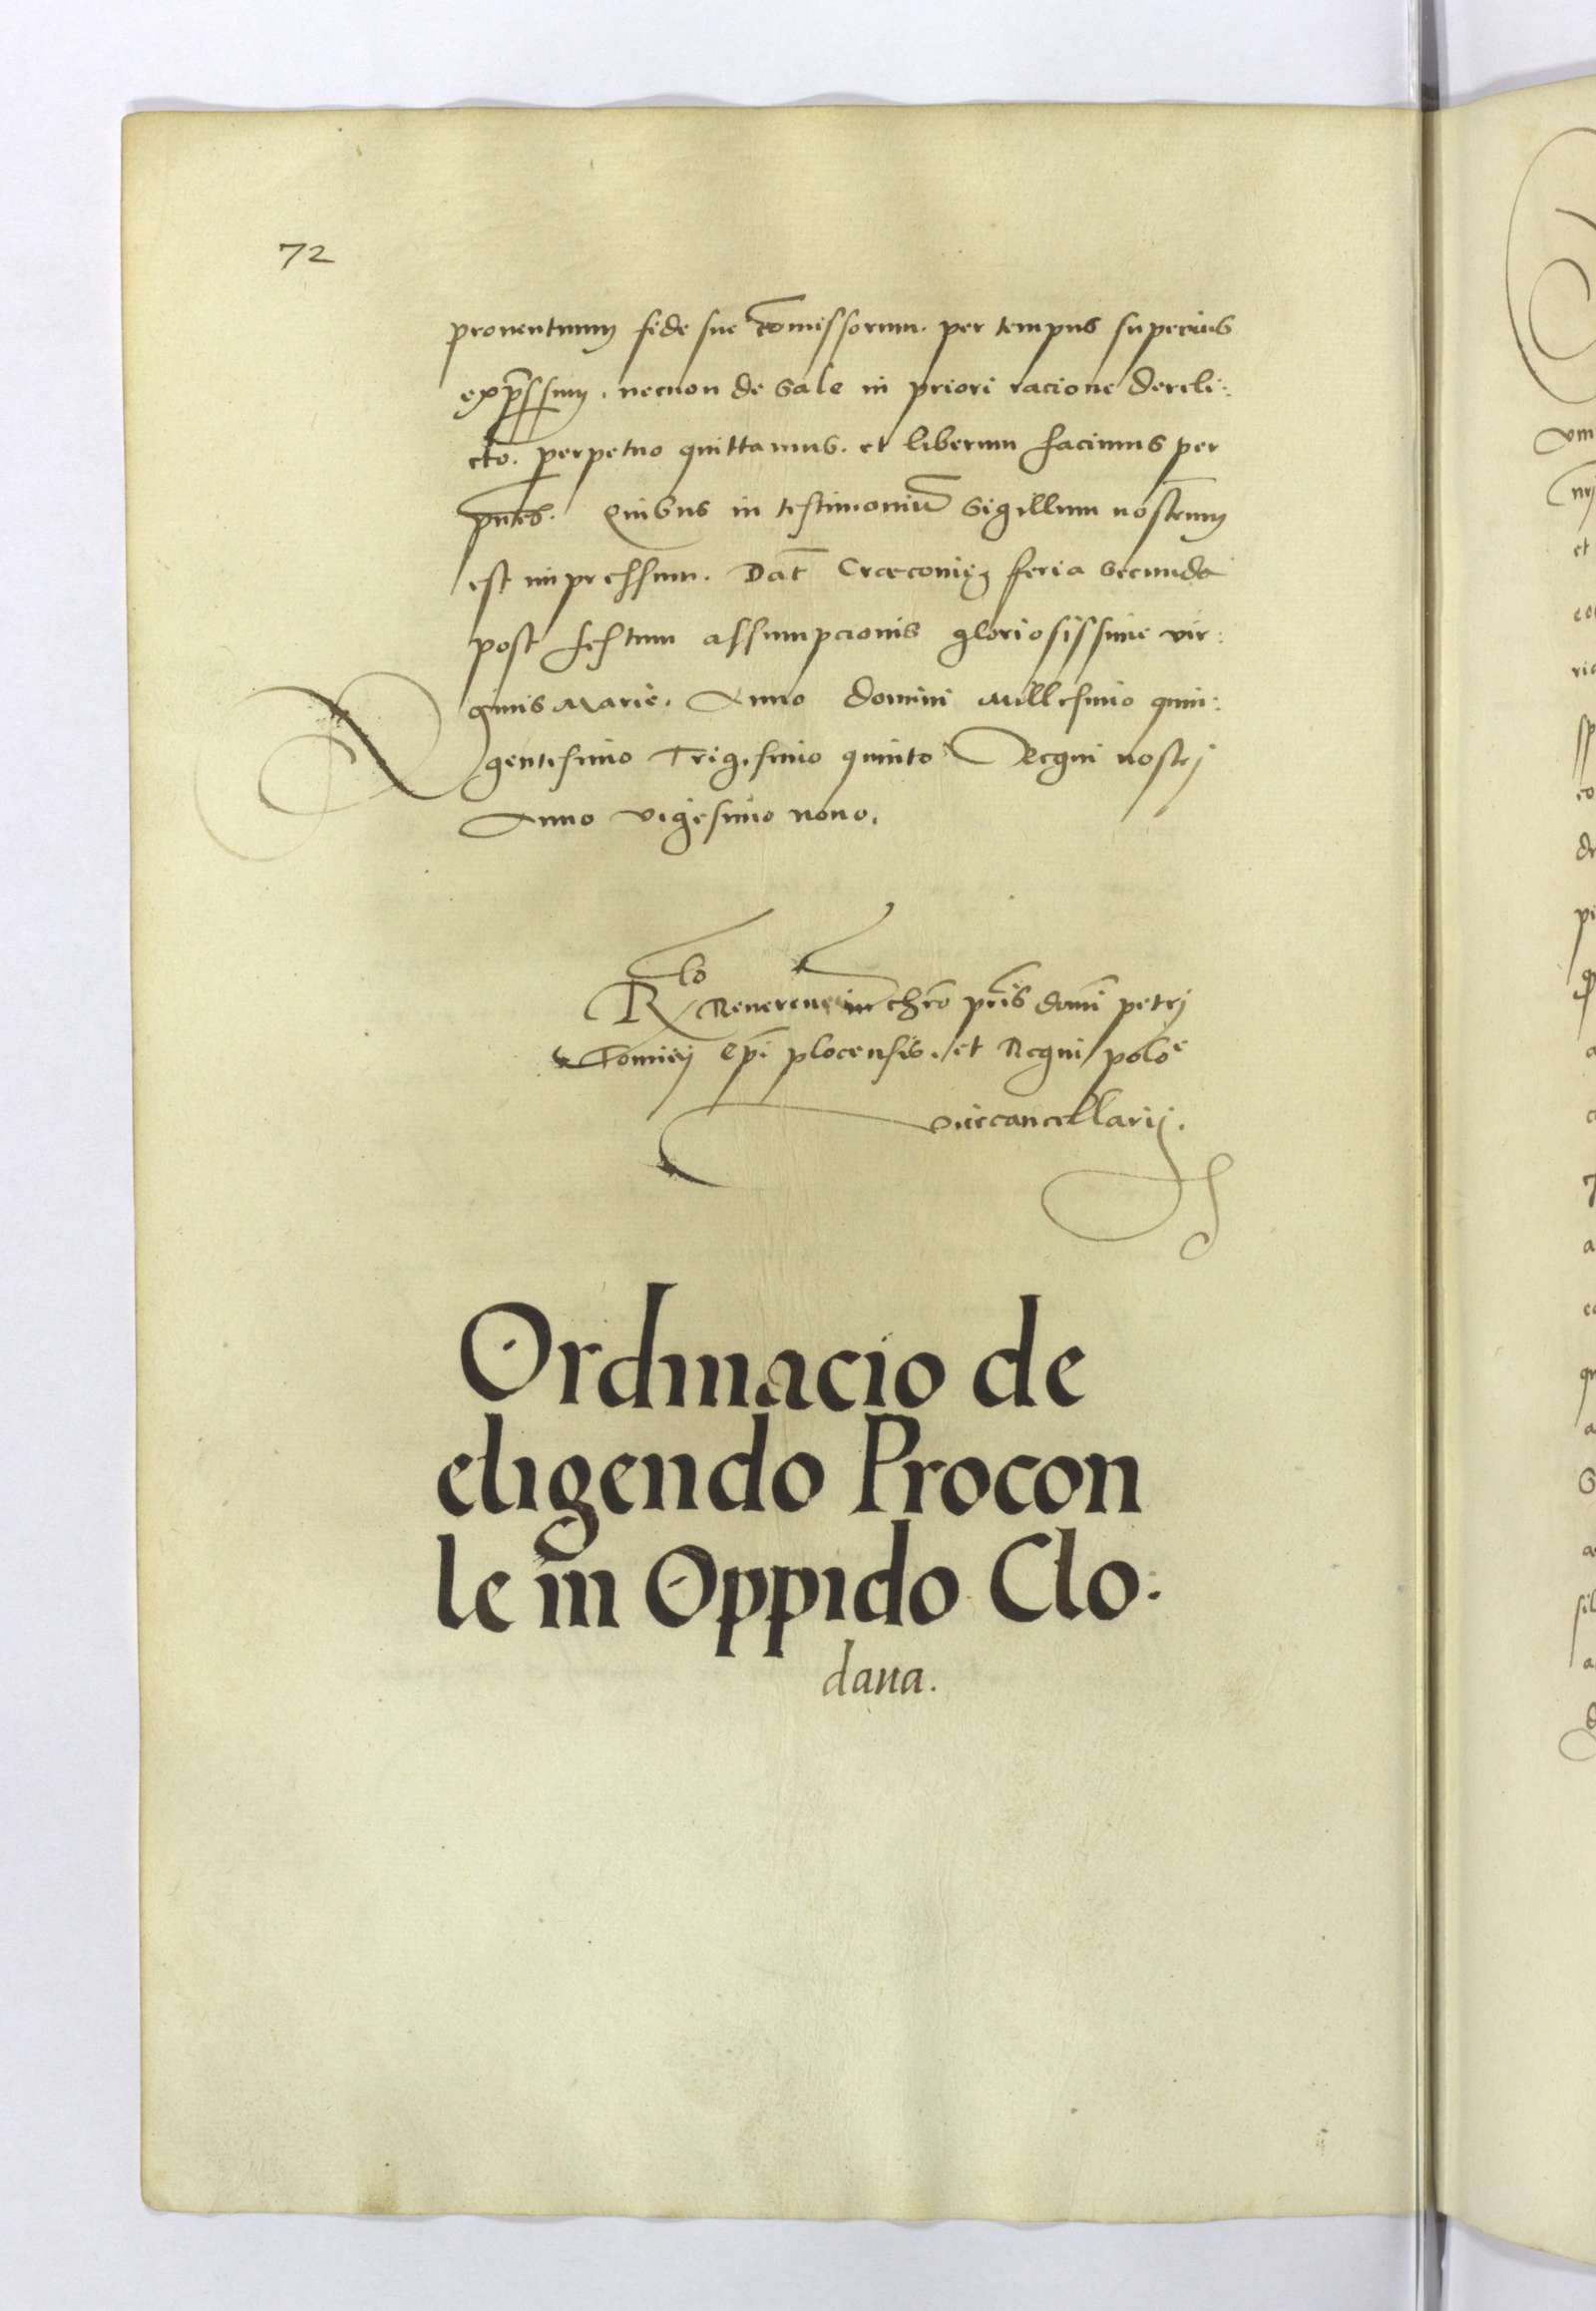 72
prouentuum fidei sue comissorum. per tempus superius
exp̄ssum. necnon de sale in priori racione dereli:
cto. perpetuo quittamus. et liberum facimus per
pn̄tes. Quibus in testimoniū sigillum nostrum
est impressum. Dat̄ Cracouie feria secunda
post festum assumpcionis gloriosissime vir:
ginis Marie. Anno domini Millesimo quin:
gentesimo Trigesimo quinto Regni nostri
Anno vigesimo nono.
Rlo Reueren in chro pr̄is domī petri
Tomicij ep̄i plocensis. et Regni polōe
vicecancellarij.
Ordinacio de
eligendo Procon
le in Oppido Clo:
daua.